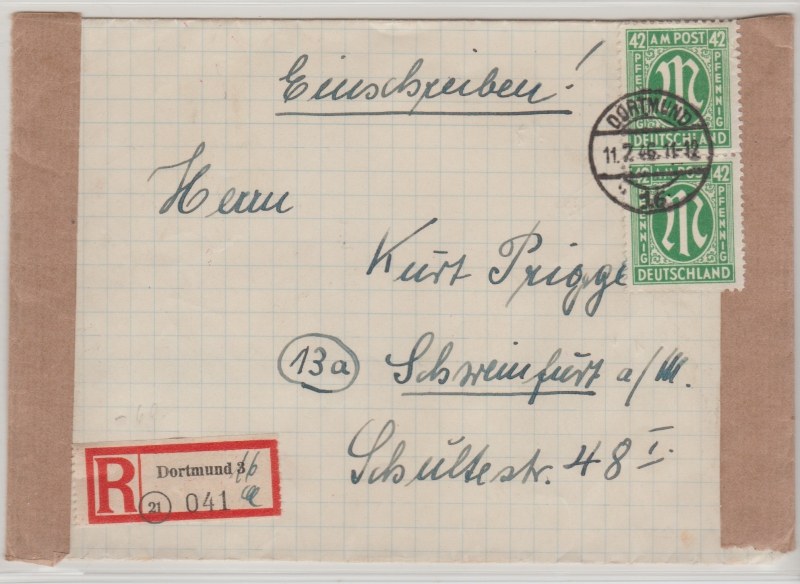 Einschreiben!
42 AM POST 42
PFENNIG
PFENNIG
DEUTSCHLAND
DORTMUND
11.7.46.11-12
16
42 AM POST 42
PFENNIG
PFENNIG
DEUTSCHLAND
Herrn
Kurt Prigge
13a Schweinfurt a/M.
Schultestr. 48 I.
-69.
R Dortmund 3
21 041